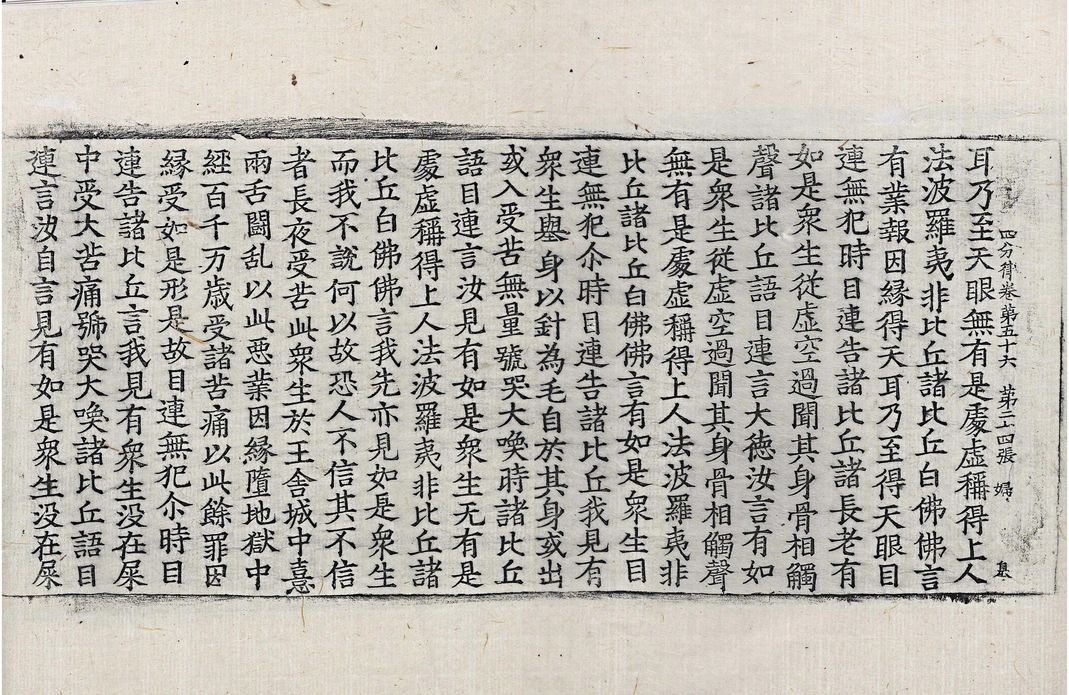 四分律卷第五十六　第二十四張　婦
耳乃至天眼無有是處虛稱得上人
法波羅夷非比丘諸比丘白佛佛言
有業報因緣得天耳乃至得天眼目
連無犯時目連告諸比丘諸長老有
如是衆生從虛空過聞其身骨相觸
聲諸比丘語目連言大德汝言有如
是衆生從虛空過聞其身骨相觸聲
無有是處虛稱得上人法波羅夷非
比丘諸比丘白佛佛言有如是衆生目
連無犯尒時目連告諸比丘我見有
衆生舉身以針為毛自於其身或出
或入受苦無量號哭大喚時諸比丘
語目連言汝見有如是衆生无有是
處虛稱得上人法波羅夷非比丘諸
比丘白佛佛言我先亦見如是衆生
而我不說何以故恐人不信其不信
者長夜受苦此衆生於王舍城中憙
兩舌鬪乱以此惡業因緣墮地獄中
經百千万歲受諸苦痛以此餘罪因
緣受如是形是故目連無犯尒時目
連告諸比丘言我見有衆生没在屎
中受大苦痛號哭大喚諸比丘語目
連言汝自言見有如是衆生没在屎